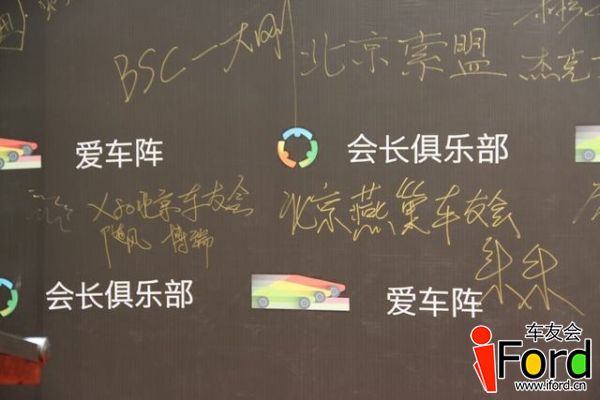 BSC一大网
北京索盟
杰克
爱车阵
会长俱乐部
北京车友会
随风 博瑞
北京燕巢车友会
朱朱
会长俱乐部
爱车阵
车友会
iFord
www.iford.cn